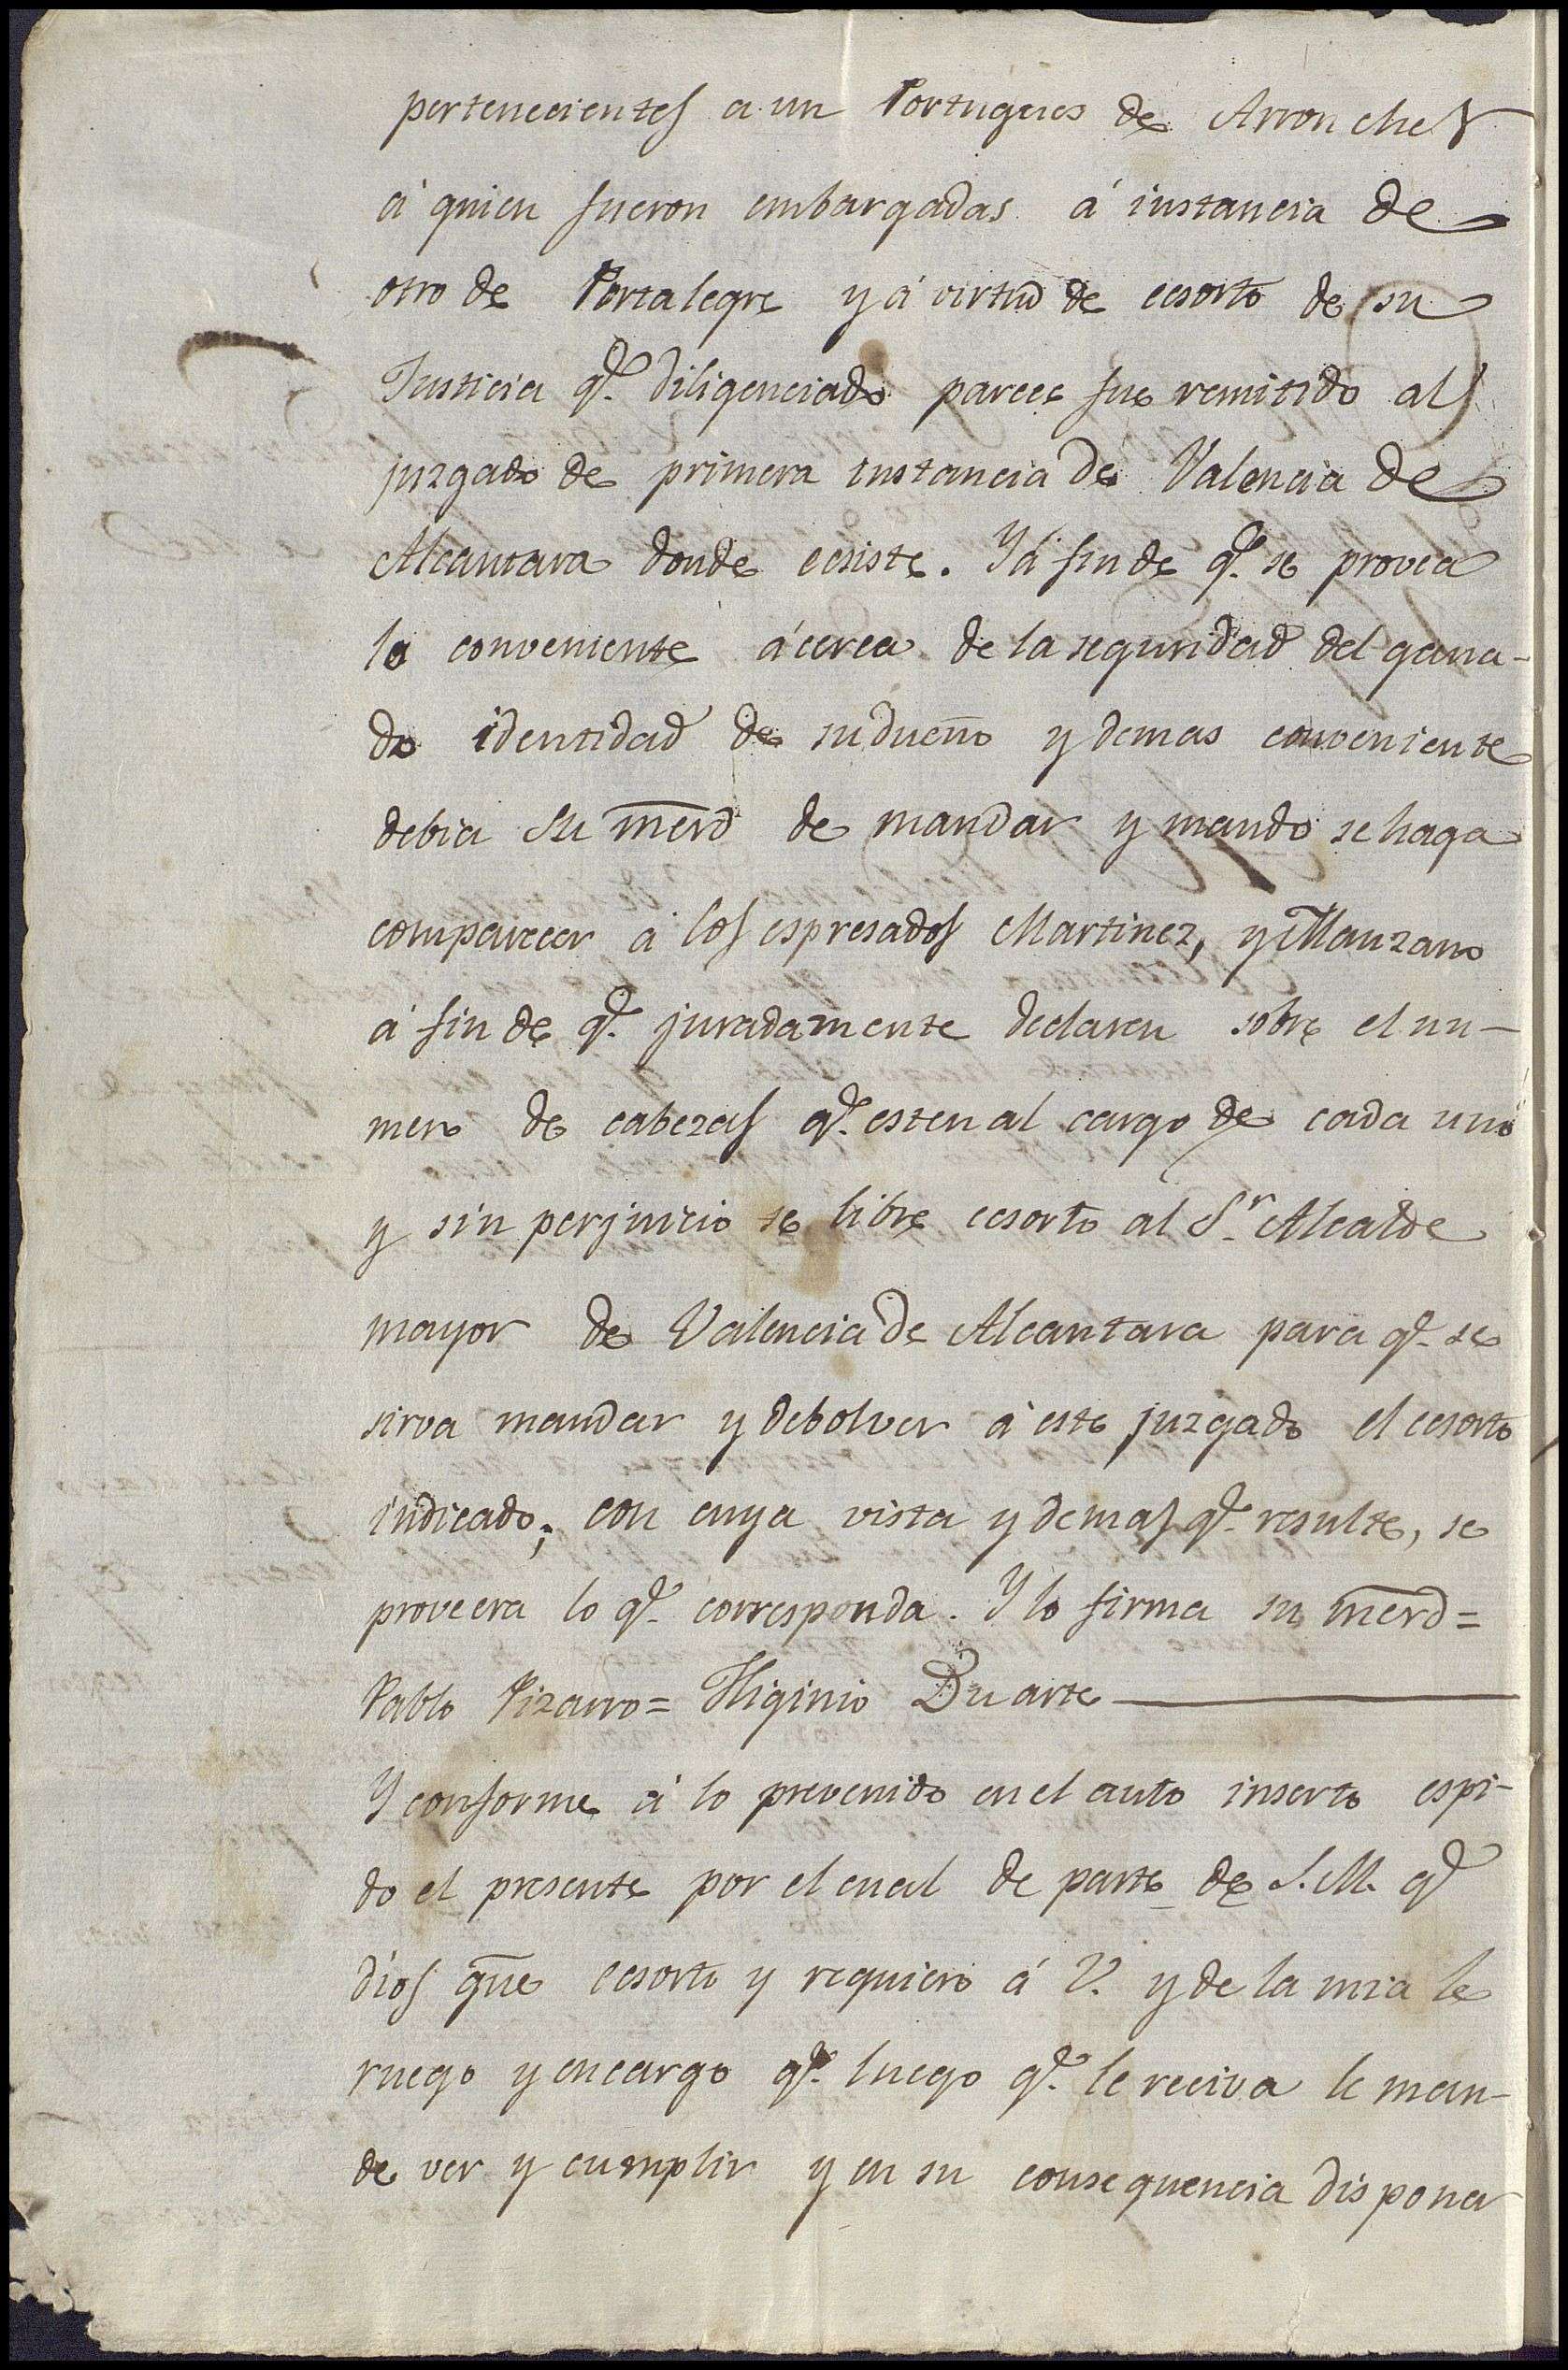 pertenecientes a un Portugues de Arronches
á quien fueron embargadas á instancia de
otro de Portalegre y á virtud de ecsorto de su
Justicia q.e diligenciado parece fue remitido al
juzgado de primera instancia de Valencia de
Alcantara donde ecsiste. Y á fin de q.e se provea
lo conveniente ácerca de la seguridad del gana-
do identidad de su dueño y demas conveniente
debia Su merd de mandar y mando se haga
comparecer á los espresados Martinez, y Manzano
á fin de q.e juradamente declaren sobre el nu-
mero de cabezas q.e esten al cargo de cada uno
y sin perjuicio se libre ecsorto al S.r Alcalde
mayor de Valencia de Alcantara para q.e se
sirva mandar y debolver á este juzgado el ecsorto
indicado; con cuya vista y demas q.e resulte, se
proveera lo q.e corresponda. Y lo firma su merd=
Pablo Pizarro= Higinio Duarte
Y conforme á lo prevenido en el auto inserto espi-
do el presente por el cual de parte de S. M. q.e
dios gue ecsorto y requiero á V. y de la mia le
ruego y encargo q.e luego q.e le reciva le man-
de ver y cumplir y en su consequencia disponer